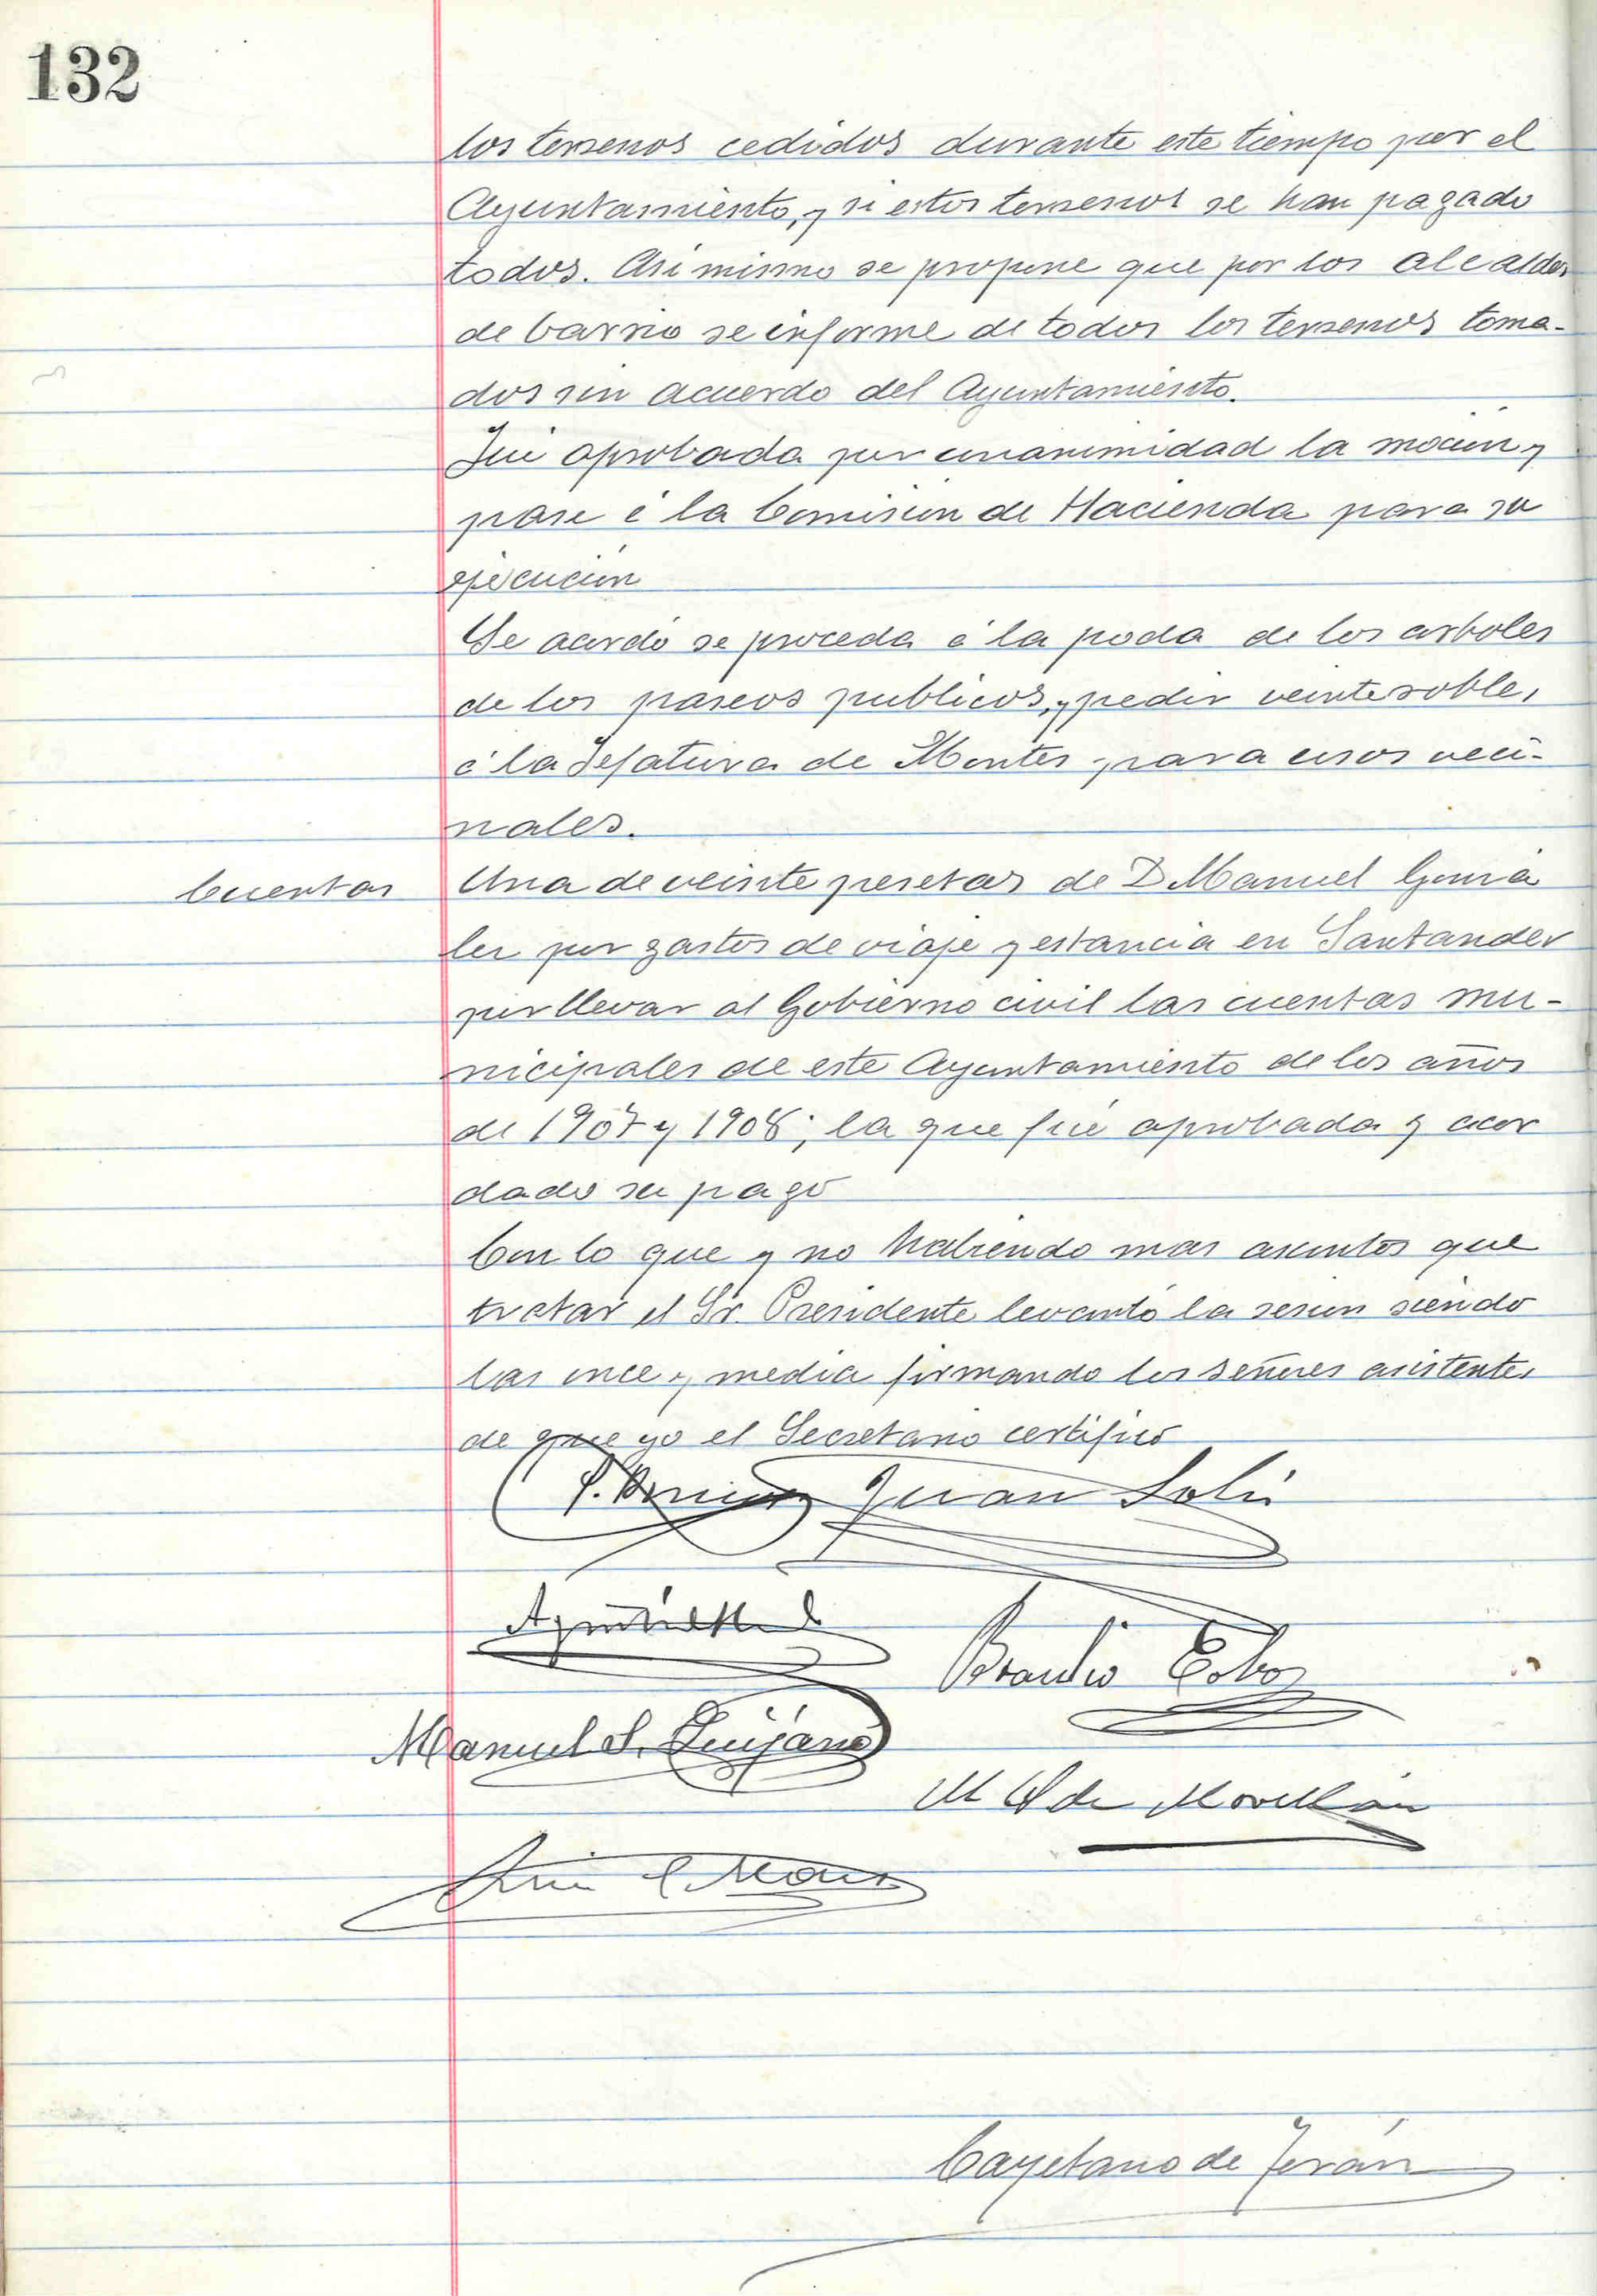 132
los terrenos cedidos durante este tiempo por el
Ayuntamiento, y si estos terrenos se han pagado
todos. Asi mismo se propone que por los alcaldes
de barrio se informe de todos los terrenos toma-
dos sin acuerdo del Ayuntamiento.
Fué aprobada por unanimidad la moción y
pase á la Comisión de Hacienda para su
ejecución
Se acordó se proceda á la poda de los arboles
de los paseos publicos, y pedir veinte robles
á la Jefatura de Montes para usos veci-
nales.
Cuentas
Una de veinte pesetas de D Manuel Gonzá
lez por gastos de viaje y estancia en Santander
por llevar al Gobierno civil las cuentas mu-
nicipales de este Ayuntamiento de los años
de 1907 y 1908; la que fué aprobada y acor
dado su pago
Con lo que y no habiendo mas asuntos que
tratar el Sr. Presidente levantó la sesión siendo
las once y media firmando los señores asistentes
de que yo el Secretario certifico
Juan Solís
Braulio Cobo
Manuel S. Quijano
M de Movellán
Cayetano de Terán